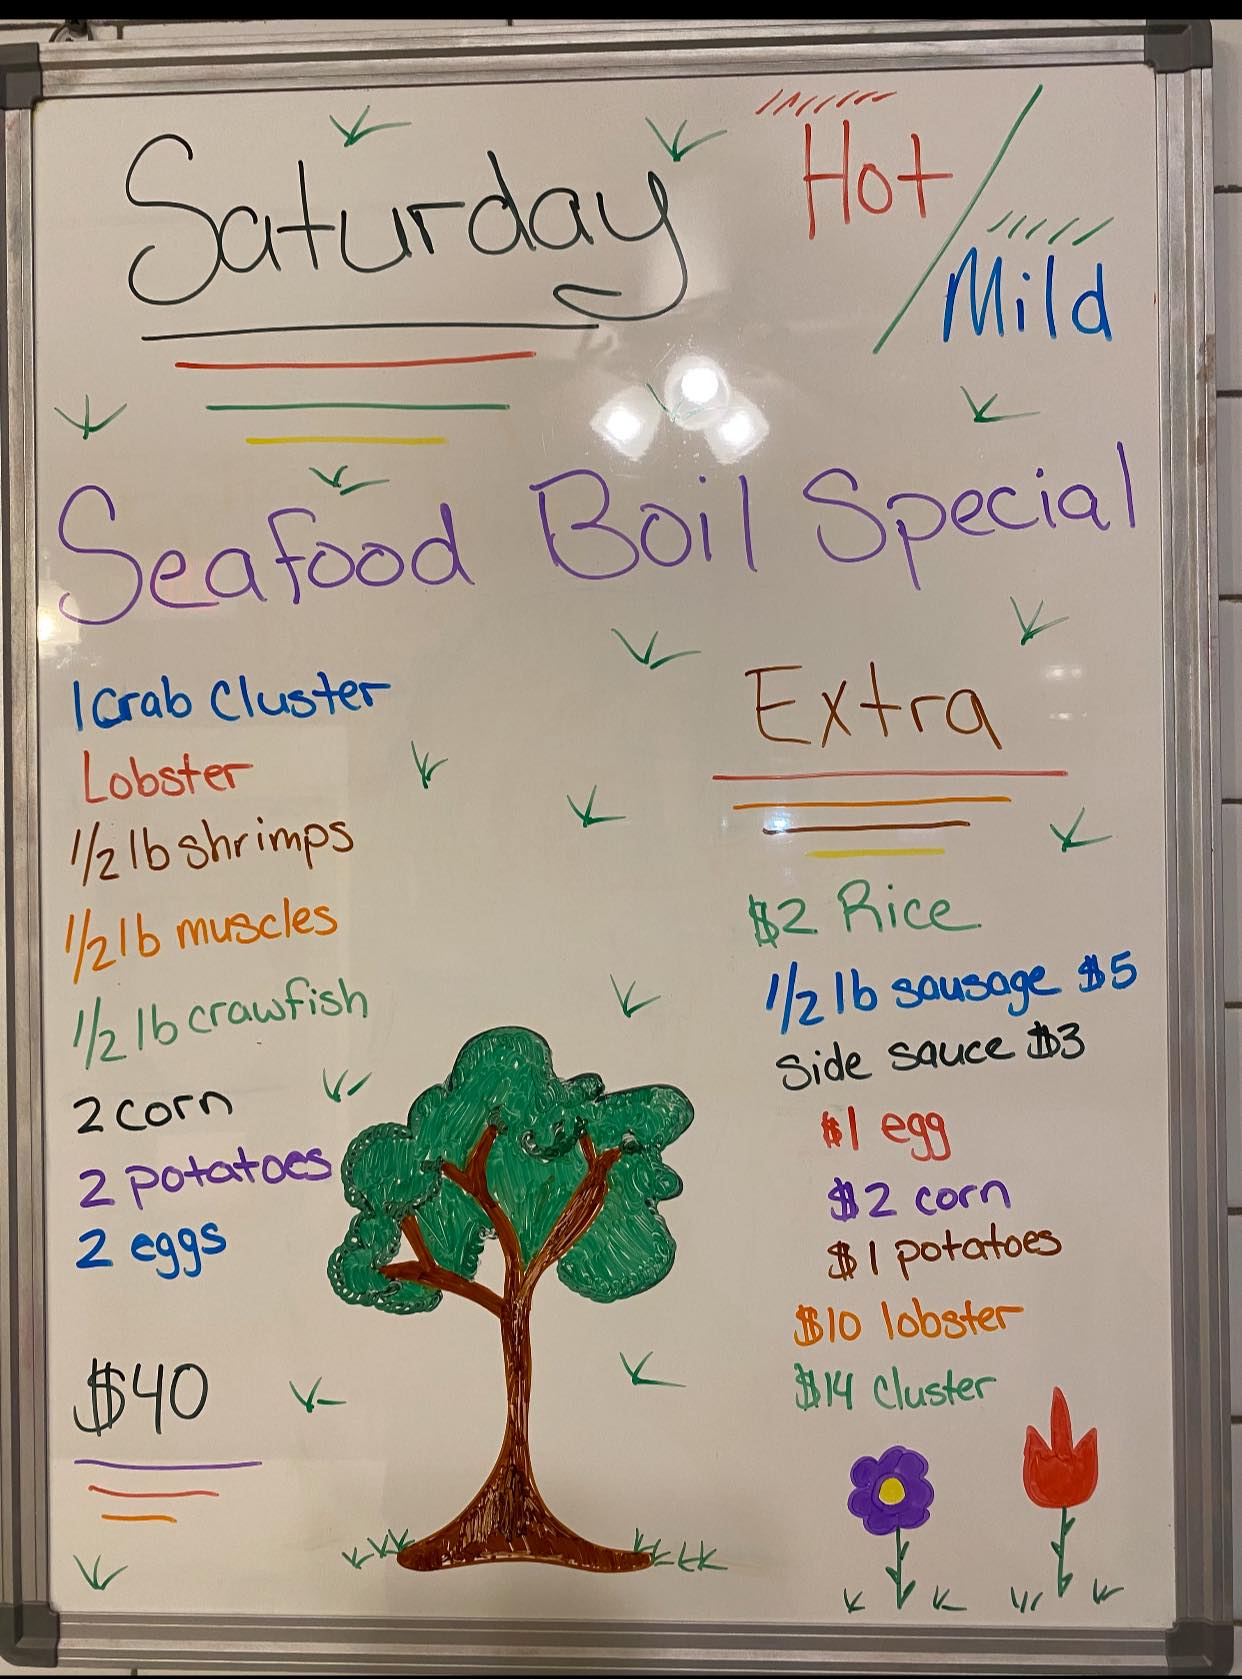 Saturday
Hot/
Mild
Seafood Boil Special
1 Crab Cluster
Lobster
1/2 lb shrimps
1/2 lb muscles
1/2 lb crawfish
2 corn
2 potatoes
2 eggs
$40
Extra
$2 Rice
1/2 lb sausage $5
Side sauce $3
$1 egg
$2 corn
$1 potatoes
$10 lobster
$14 cluster